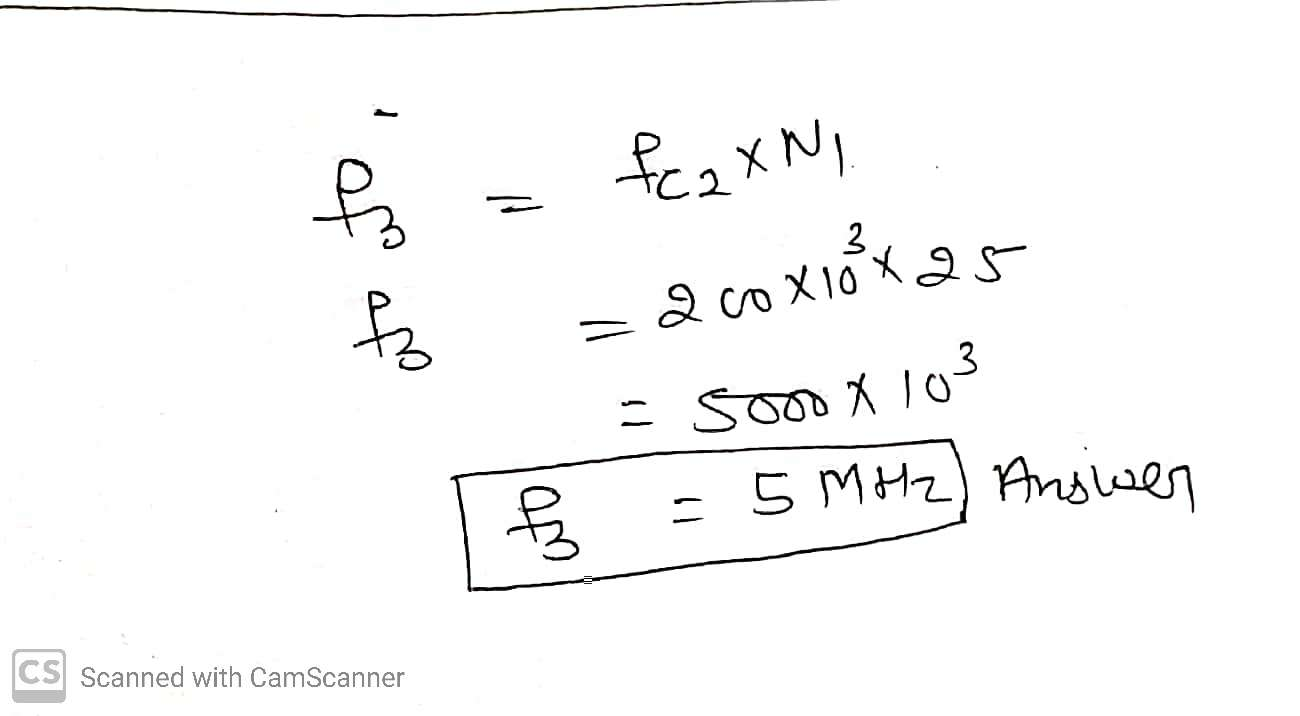 f₃ = fc₂ × N₁
f₃ = 200×10³×25
= 5000 × 10³
f₃ = 5 MHz Answer
CS Scanned with CamScanner